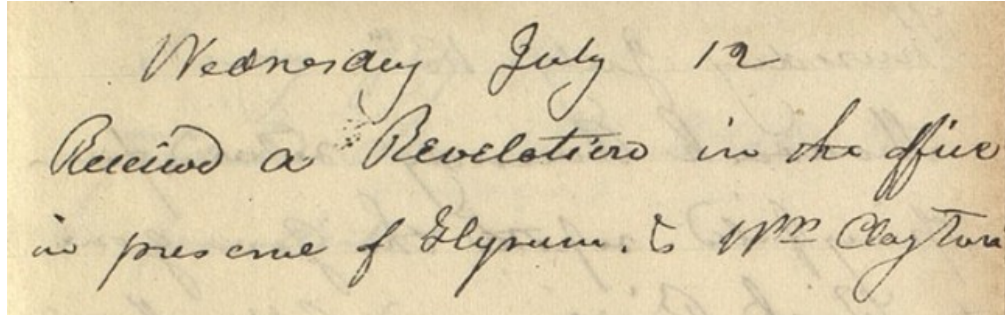 Wednesday July 12
Receivd a Revelation in the office
in presence of Hyrum. & Wm Clayton